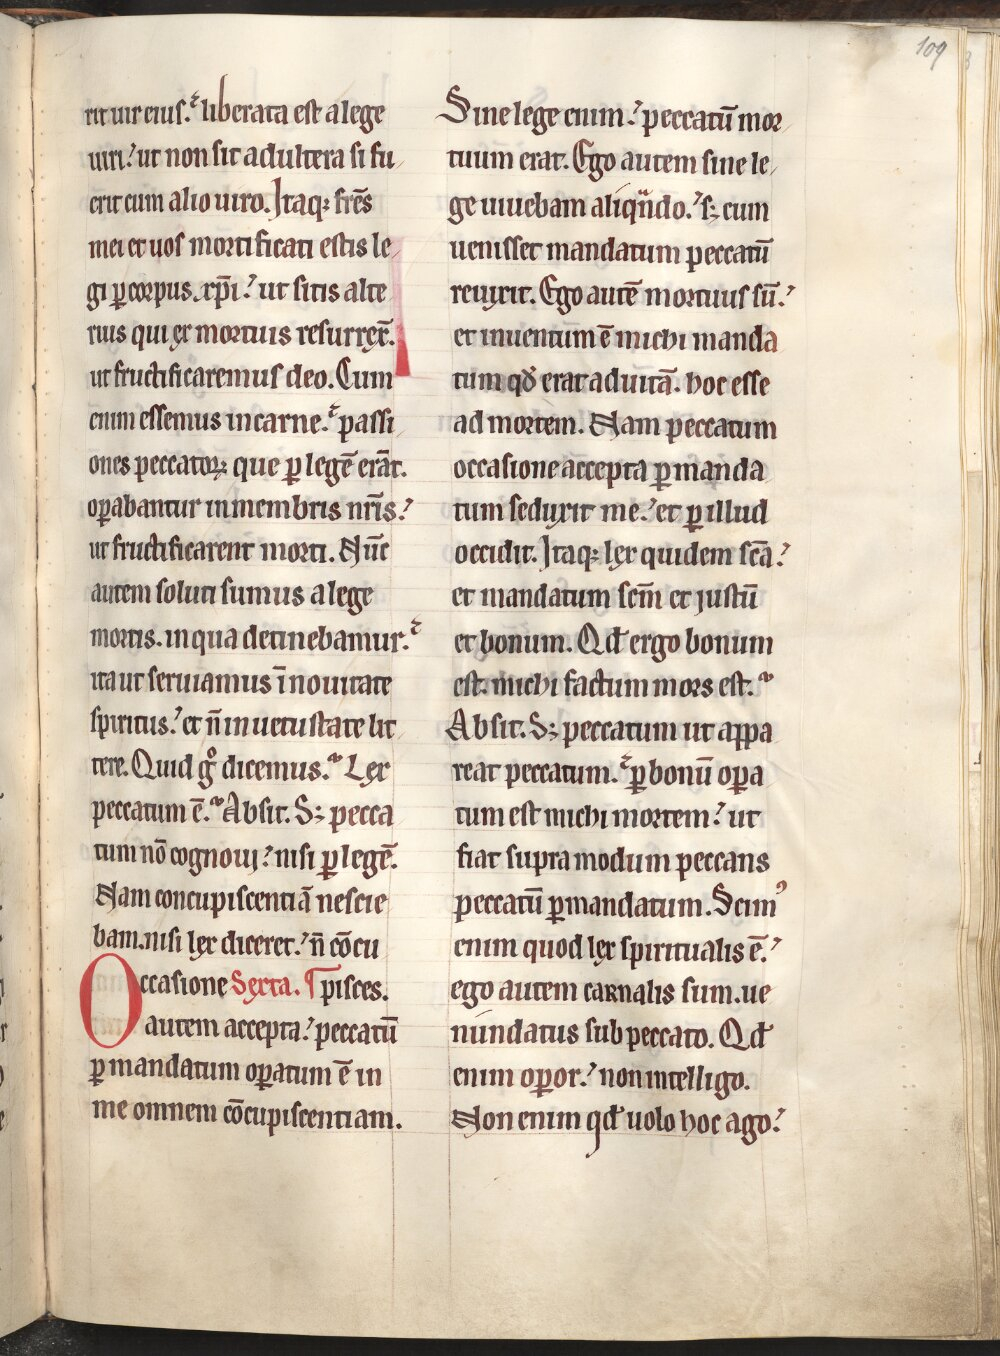 109
rit uir eiuſ. liberata eſt a lege
uiri. ut non ſit adultera ſi fu
erit cum alio uiro. Itaq; fr̄es
mei et uoſ mortificati eſtis le
gi ꝑ corpus xp̄i. ut ſitis alte
rius qui ex mortuis reſurrex̄.
ut fructificaremuſ deo. Cum
enim eſſemus in carne. paſſi
ones peccatoꝝ que ꝑ legē erāt.
oꝑabantur in membris nr̄is.
ut fructificarent morti. Nūc
autem ſoluti ſumus a lege
mortis. in qua detinebamur.
ita ut ſeruiamus ī nouitate
ſpiritus. et n̄ in uetuſtate lit
tere. Quid gͦ dicemus. Lex
peccatum ē. Abſit. S; pecca
tum nō cognoui. niſi ꝑ legē.
Nam concupiſcentiā neſcie
bam. niſi lex diceret. n̄ cōcu
piſces.
Sexta.
Occaſione
autem accepta. peccatū
ꝑ mandatum oꝑatum ē in
me omnem cōcupiſcentiam.
Sine lege enim. peccatū mor
tuum erat. Ego autem ſine le
ge uiuebam aliqᵃndo. ſ; cum
ueniſſet mandatum peccatū
reuixit. Ego autē mortuuſ sū.
et inuentum ē michi manda
tum qđ erat ad uitā. hoc eſſe
ad mortem. Nam peccatum
occaſione accepta ꝑ manda
tum ſeduxit me. et ꝑ illud
occidit. Itaq; lex quidem ſcā.
et mandatum ſcm̄ et juſtū
et bonum. Qđ ergo bonum
eſt. michi factum mors eſt.
Abſit. S; peccatum ut appa
reat peccatum. ꝑ bonū oꝑa
tum eſt michi mortem. ut
fiat ſupra modum peccans
peccatū ꝑ mandatum. Scimꝰ
enim quod lex ſpiritualis ē.
ego autem carnalis ſum. ue
nundatus ſub peccato. Qđ
enim oꝑor. non intelligo.
Non enim qđ uolo hoc ago.